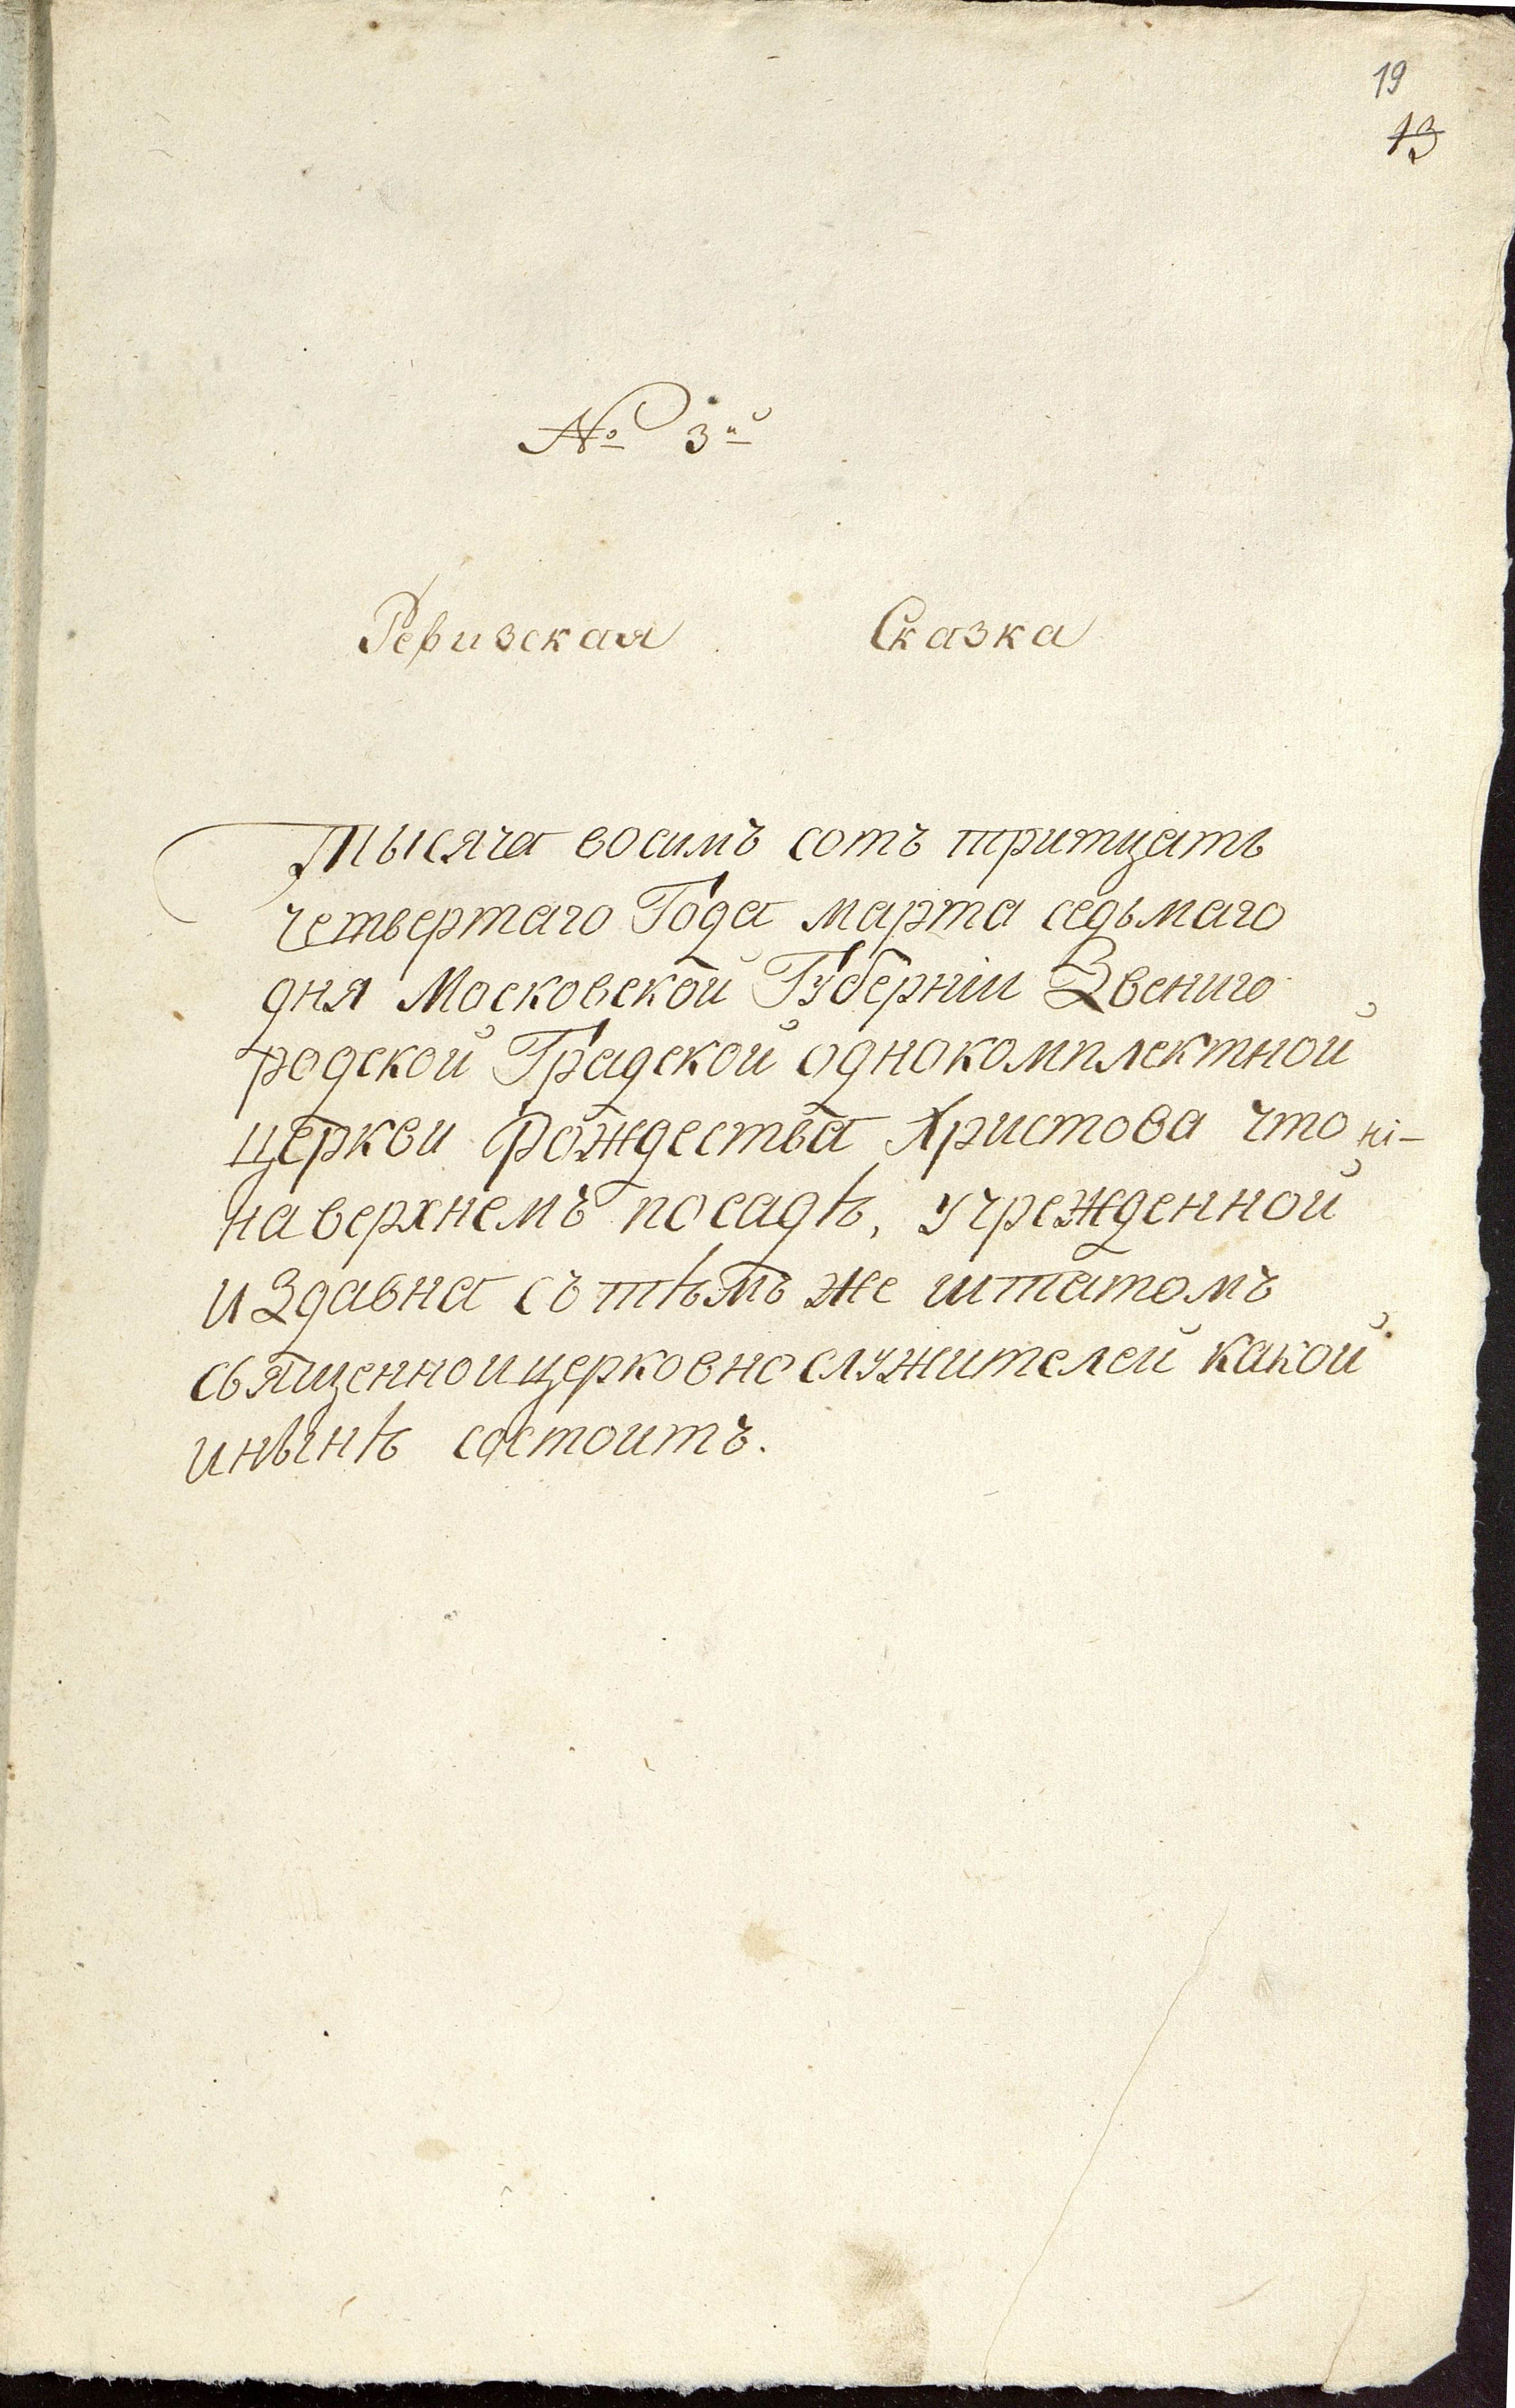 19
13
№ 3й
Ревизская Сказка
Тысяча восимъ сотъ тритцать
четвертаго Года марта седьмаго
дня Московской Губерніи Звениго
родской Градской однокомплектной
церкви Рождества Христова что
на верхнемъ посадѣ, учрежденной
издавна съ тѣмъ же штатомъ
священно и церковно служителей какой
и нынѣ состоитъ.